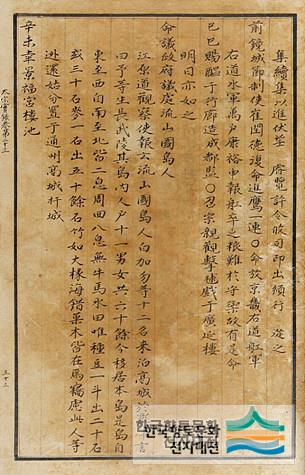 集續集以進伏望 睿覽許令攸司印出頒行 從之
前鏡城節制使崔閏德復命進鷹一連○命放京畿右道舡軍
右道水軍萬戶康裕申報舡卒乏粮難於守禦故有是命
己巳賜醞于行廊造成都監○召宗親觀擊毬戲于廣延樓
明日亦如之
命議政府議處流山國島人
江原道觀察使報云流山國島人白加勿等十二名來泊高城於言
曰予等生長武陵其島內人戶十一男女共六十餘今移居本島是島自
東至西自南至北皆二息周回八息無牛馬水田唯種豆一斗出二十石
或三十石麥一石出五十餘石竹如大椽海錯果木皆在焉竊慮此人等
逃還姑分置于通州高城杆城
辛未幸景福宮樓池
太宗實錄卷第二十三
三十三
한국향토문화
전자대전